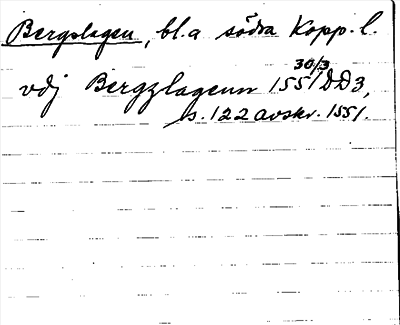 Bergslagen, bl.a södra Kopp.l.
vdj Bergzlagenn 1551 30/3 DD3,
s. 122 avskr. 1551.